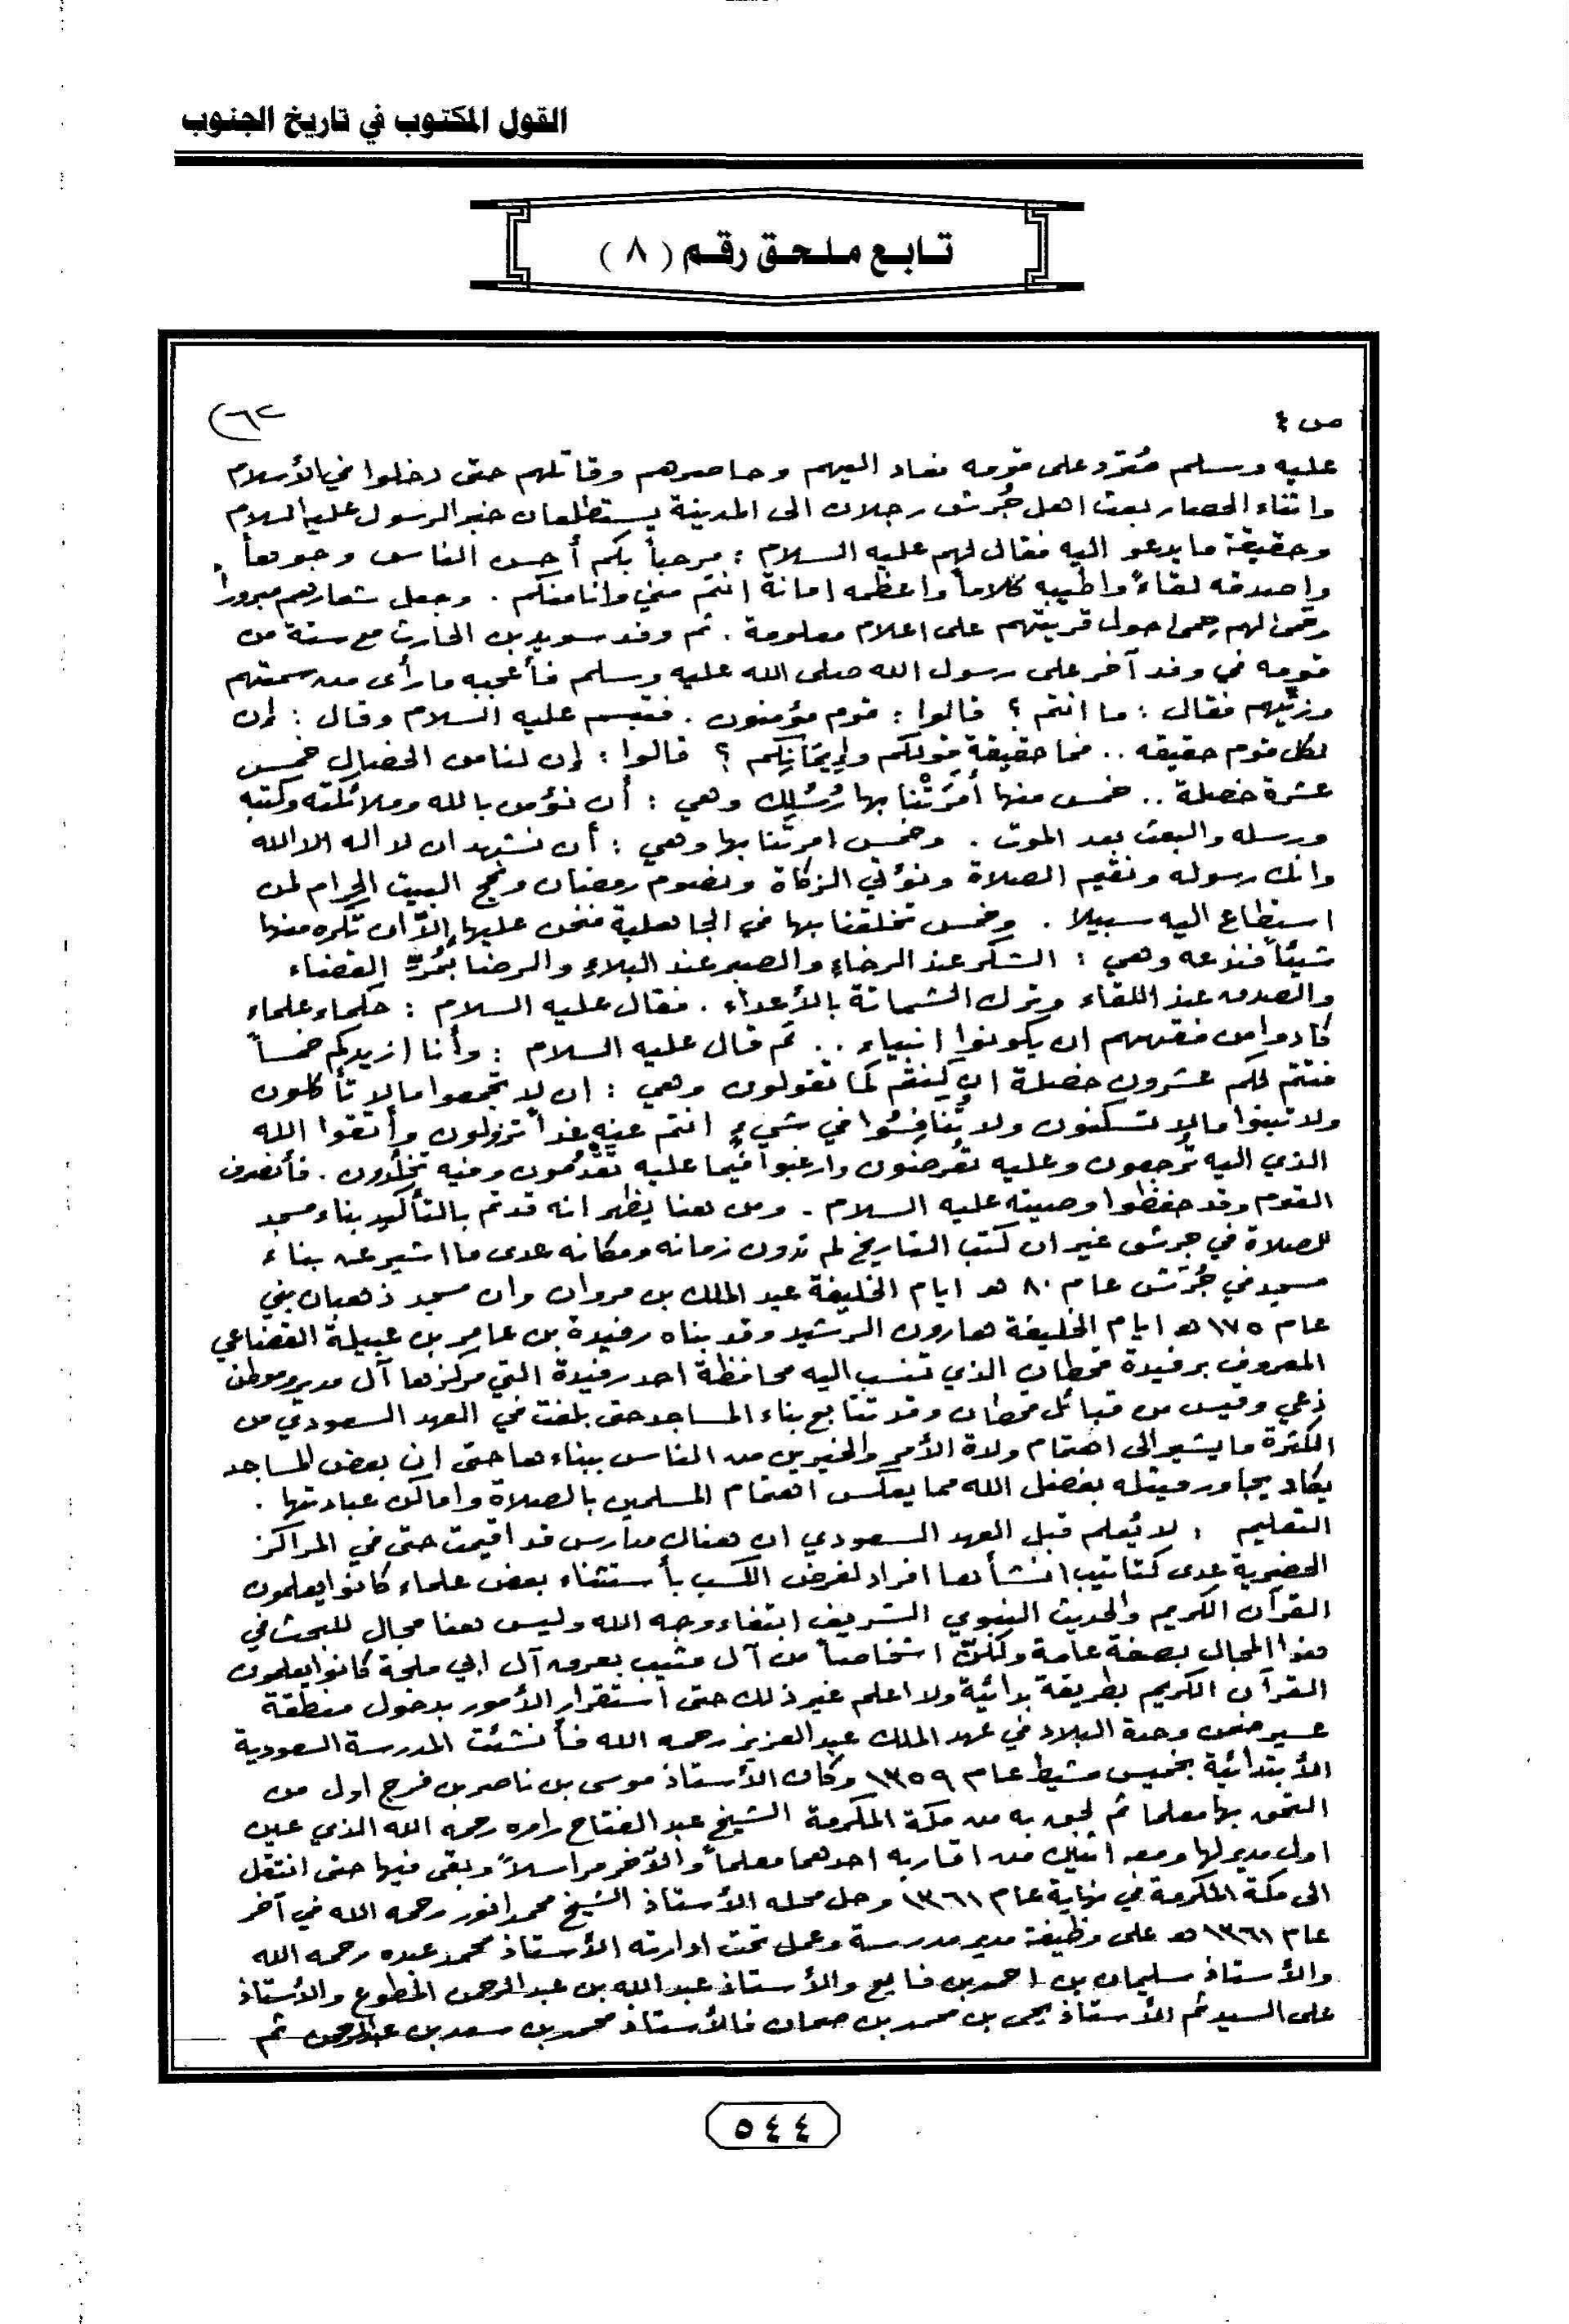 القول المكتوب في تاريخ الجنوب
تابع ملحق رقم ( ٨ )
ص ٤
٦٢)
عليه وسلم فعرد على قومه فعاد اليهم وحاصرهم وقاتلهم حتى دخلوا في الأسلام
واثناء الحصار بعث اهل جُرش رجلان الى المدينة يستطلعان خبر الرسول عليه السلام
وحقيقة ما يدعو اليه فقال لهم عليه السلام : مرحباً بكم أحسن الناس وجوهاً
واصدقه لقاءً واطيبه كلاماً واعظمه امانة انتم مني وانا منكم . وجعل شعارهم مبروراً
وحمى لهم حمى حول قريتهم على اعلام معلومة . ثم وفد سويد بن الحارث مع ستة من
قومه في وفد آخر على رسول الله صلى الله عليه وسلم فأعجبه ما رأى من سمتهم
وزيهم فقال : ما انتم ؟ قالوا : قوم مؤمنون . فتبسم عليه السلام وقال : إن
لكل قوم حقيقه .. فما حقيقة قولكم وإيمَانِكم ؟ قالوا : إن لنا من الخصال خمس
عشرة خصلة .. خمس منها أمَرَتْنا بها رُسُلِك وهي : أن نؤمن بالله وملائكته وكتبه
ورسله والبعث بعد الموت . وخمس امرتنا بها وهي : أن نشهد ان لا اله الا الله
وانك رسوله ونقيم الصلاة ونؤتي الزكاة ونصوم رمضان ونحج البيت الحرام لمن
استطاع اليه سبيلا . وخمس تخلقنا بها في الجاهلية فنحن عليها إلاّ ان تكره منها
شيئاً فندعه وهي : الشكر عند الرخاءِ والصبر عند البلاءِ والرضا بمُرِّ القضاء
والصدق عند اللقاء وترك الشماتة بالأعداء . فقال عليه السلام : حكماء علماء
كادوا من فقههم ان يكونوا انبياء .. ثم قال عليه السلام : وأنا ازيدكم خمساً
فتتم لكم عشرون خصلة ان كنتم كما تقولون وهي : ان لا تجمعوا مالا تأكلون
ولا تبنوا مالا تسكنون ولا تُنافِسُوا في شيءٍ انتم عنه غداً تزولون وأتقوا الله
الذي اليه تُرجعون وعليه تُعرضون وارغبوا فيما عليه تقدُمون وفيه تخلُدون . فأنصرف
القوم وقد حفظوا وصيته عليه السلام . ومن هنا يظهر انه قد تم بالتأكيد بناء مسجد
للصلاة في جرش غير ان كتب التاريخ لم تدون زمانه ومكانه عدى ما اشير عن بناء
مسجد في جُرَش عام ٨٠ هـ ايام الخليفة عبد الملك بن مروان وان مسجد ذهبان بني
عام ١٧٥ هـ ايام الخليفة هارون الرشيد وقد بناه رفيدة بن عامر بن عبيلة القضاعي
المعروف برفيدة قحطان الذي تنسب اليه محافظة احد رفيدة التي مركزها آل مدير وموطن
وقيس من قبائل قحطان وقد تتابع بناء المساجد حتى بلغت في العهد السعودي من
الكثرة ما يشير الى اهتمام ولاة الأمر والخيرين من الناس ببناءها حتى ان بعض المساجد
يكاد يجاور مثله بفضل الله مما يعكس اهتمام المسلمين بالصلاة واماكن عبادتها .
التعليم : لا يُعلم قبل العهد السعودي ان هناك مدارس قد اقيمت حتى في المراكز
الحضرية عدى كتاتيب انشأها افراد لغرض الكسب بأستثناء بعض علماء كانوا يعلمون
القرآن الكريم والحديث النبوي الشريف ابتغاء وجه الله وليس هنا مجال للبحث في
هذا المجال بصفة عامة ولكنّ اشخاصاً من آل مثيب بعرق آل ابي ملحة كانوا يعلمون
القرآن الكريم بطريقة بدائية ولا اعلم غير ذلك حتى أستقرار الأمور بدخول منطقة
عسير ضمن وحدة البلاد في عهد الملك عبد العزيز رحمه الله فأنشئت المدرسة السعودية
الأبتدائية بخميس مشيط عام ١٣٥٩ وكان الأستاذ موسى بن ناصر بن فرج اول من
التحق بها معلما ثم لحق به من مكة المكرمة الشيخ عبد الفتاح راوه رحمه الله الذي عين
اول مدير لها ومعه اثنين من اقاربه احدهما معلماً والآخر مراسلاً وبقى فيها حتى انتقل
الى مكة المكرمة في نهاية عام ١٣٦١ وحل محله الأستاذ الشيخ محمد انور رحمه الله في آخر
عام ١٣٦١ هـ على وظيفة مدير مدرسة وعمل تحت ادارته الأستاذ محمد عبده رحمه الله
والأستاذ سليمان بن احمد بن فايع والأستاذ عبد الله بن عبد الرحمن المطوع والأستاذ
على السيد ثم الأستاذ يحى بن محمد بن صمان فالأستاذ محمد بن سعد بن عبد الرحمن ثم
٥٤٤